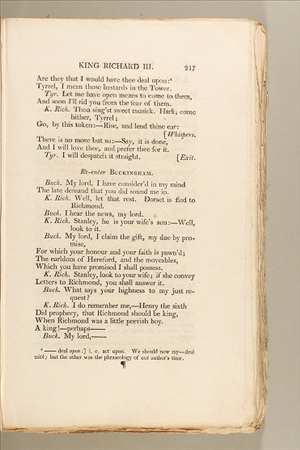 KING RICHARD III. 217
Are they that I would have thee deal upon:⁴
Tyrrel, I mean those bastards in the Tower.
Tyr. Let me have open means to come to them,
And soon I'll rid you from the fear of them.
K. Rich. Thou sing'st sweet musick. Hark, come
hither, Tyrrel;
Go, by this token:—Rise, and lend thine ear:
[Whispers.
There is no more but so:—Say, it is done,
And I will love thee, and prefer thee for it.
Tyr. I will despatch it straight. [Exit.
Re-enter BUCKINGHAM.
Buck. My lord, I have consider'd in my mind
The late demand that you did sound me in.
K. Rich. Well, let that rest. Dorset is fled to
Richmond.
Buck. I hear the news, my lord.
K. Rich. Stanley, he is your wife's son:—Well,
look to it.
Buck. My lord, I claim the gift, my due by pro-
mise,
For which your honour and your faith is pawn'd;
The earldom of Hereford, and the moveables,
Which you have promised I shall possess.
K. Rich. Stanley, look to your wife; if she convey
Letters to Richmond, you shall answer it.
Buck. What says your highness to my just re-
quest?
K. Rich. I do remember me,—Henry the sixth
Did prophecy, that Richmond should be king,
When Richmond was a little peevish boy.
A king!—perhaps——
Buck. My lord,——
⁴ —— deal upon:] i. e. act upon. We should now say—deal
with; but the other was the phraseology of our author's time.